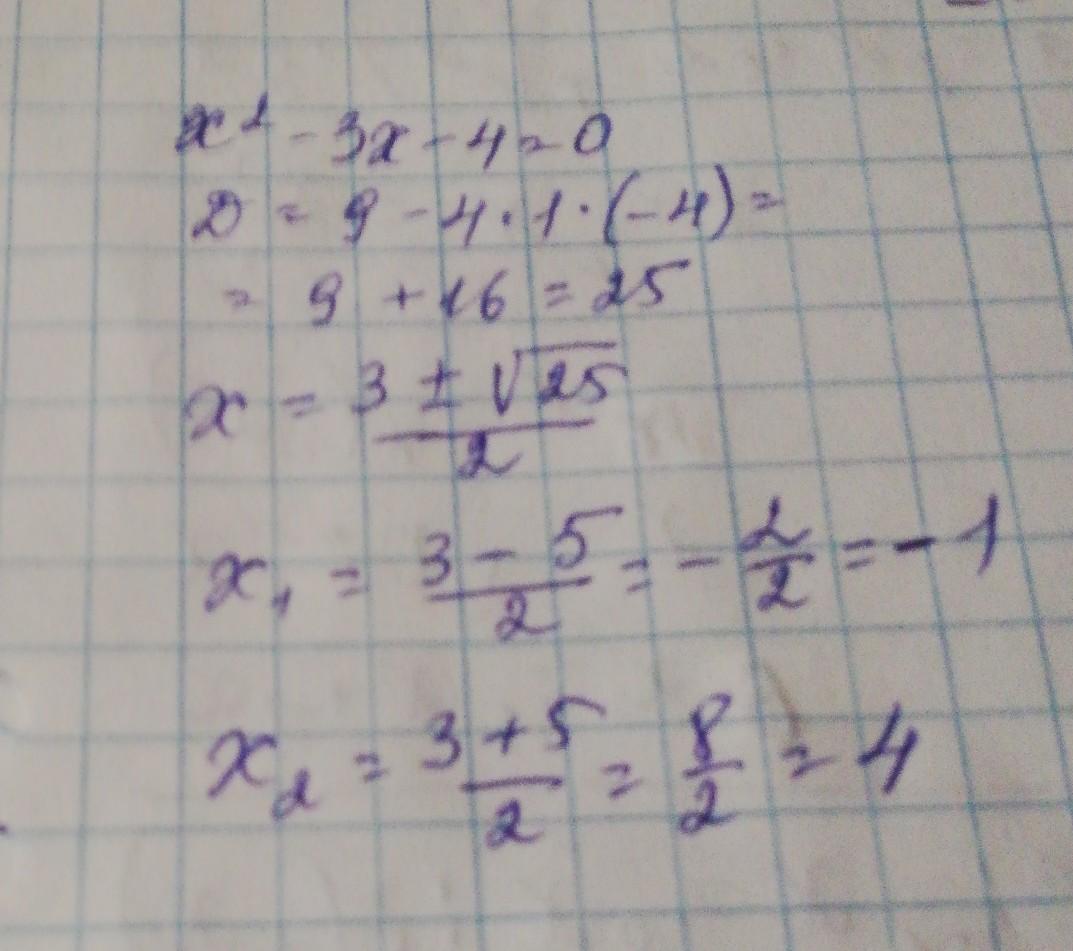 x² - 3x - 4 = 0
D = 9 - 4 · 1 · (-4) =
= 9 + 16 = 25
x = (3 ± √25)/2
x₁ = (3 - 5)/2 = - 2/2 = - 1
x₂ = (3 + 5)/2 = 8/2 = 4